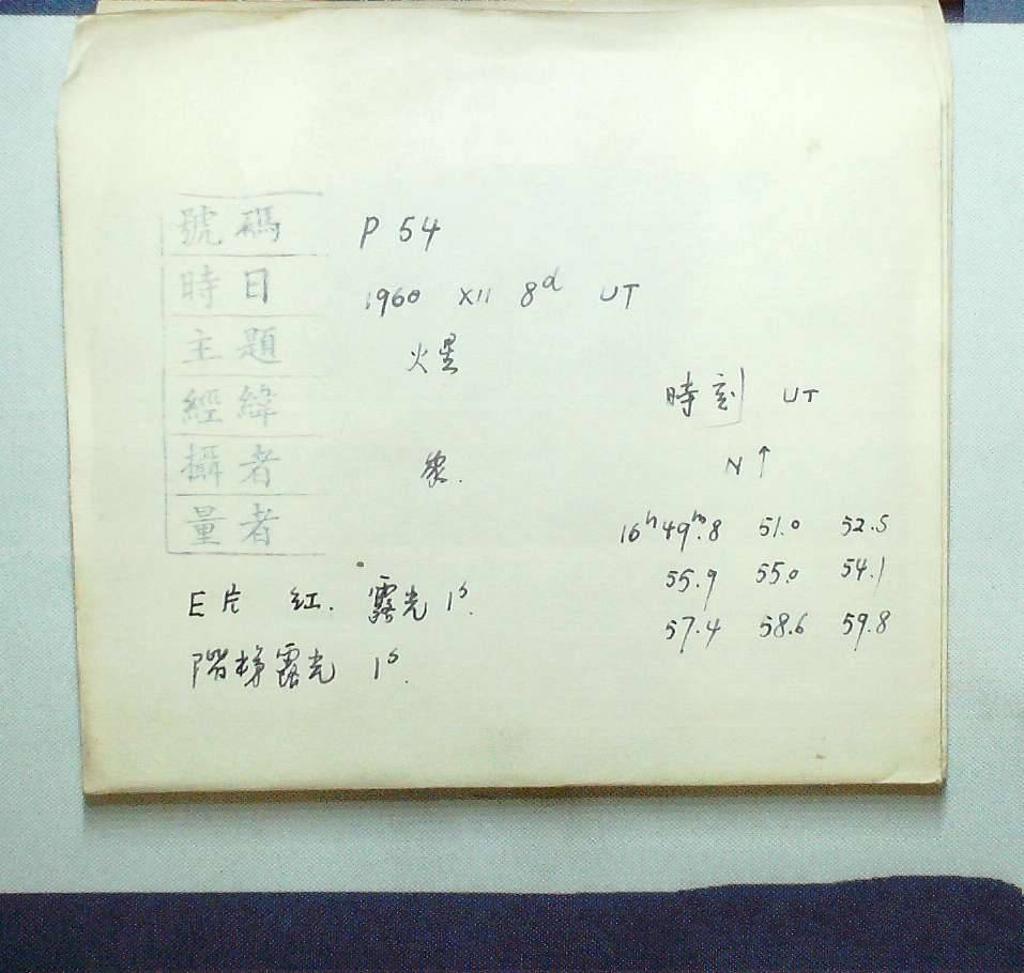 號碼 P 54
時日 1960 XII 8d UT
主題 火星
經緯 時刻 UT
攝者 N↑
量者 16h49m.8 51.0 52.5
55.9 55.0 54.1
E片 紅. 露光 1s.
57.4 58.6 59.8
階梯露光 1s.